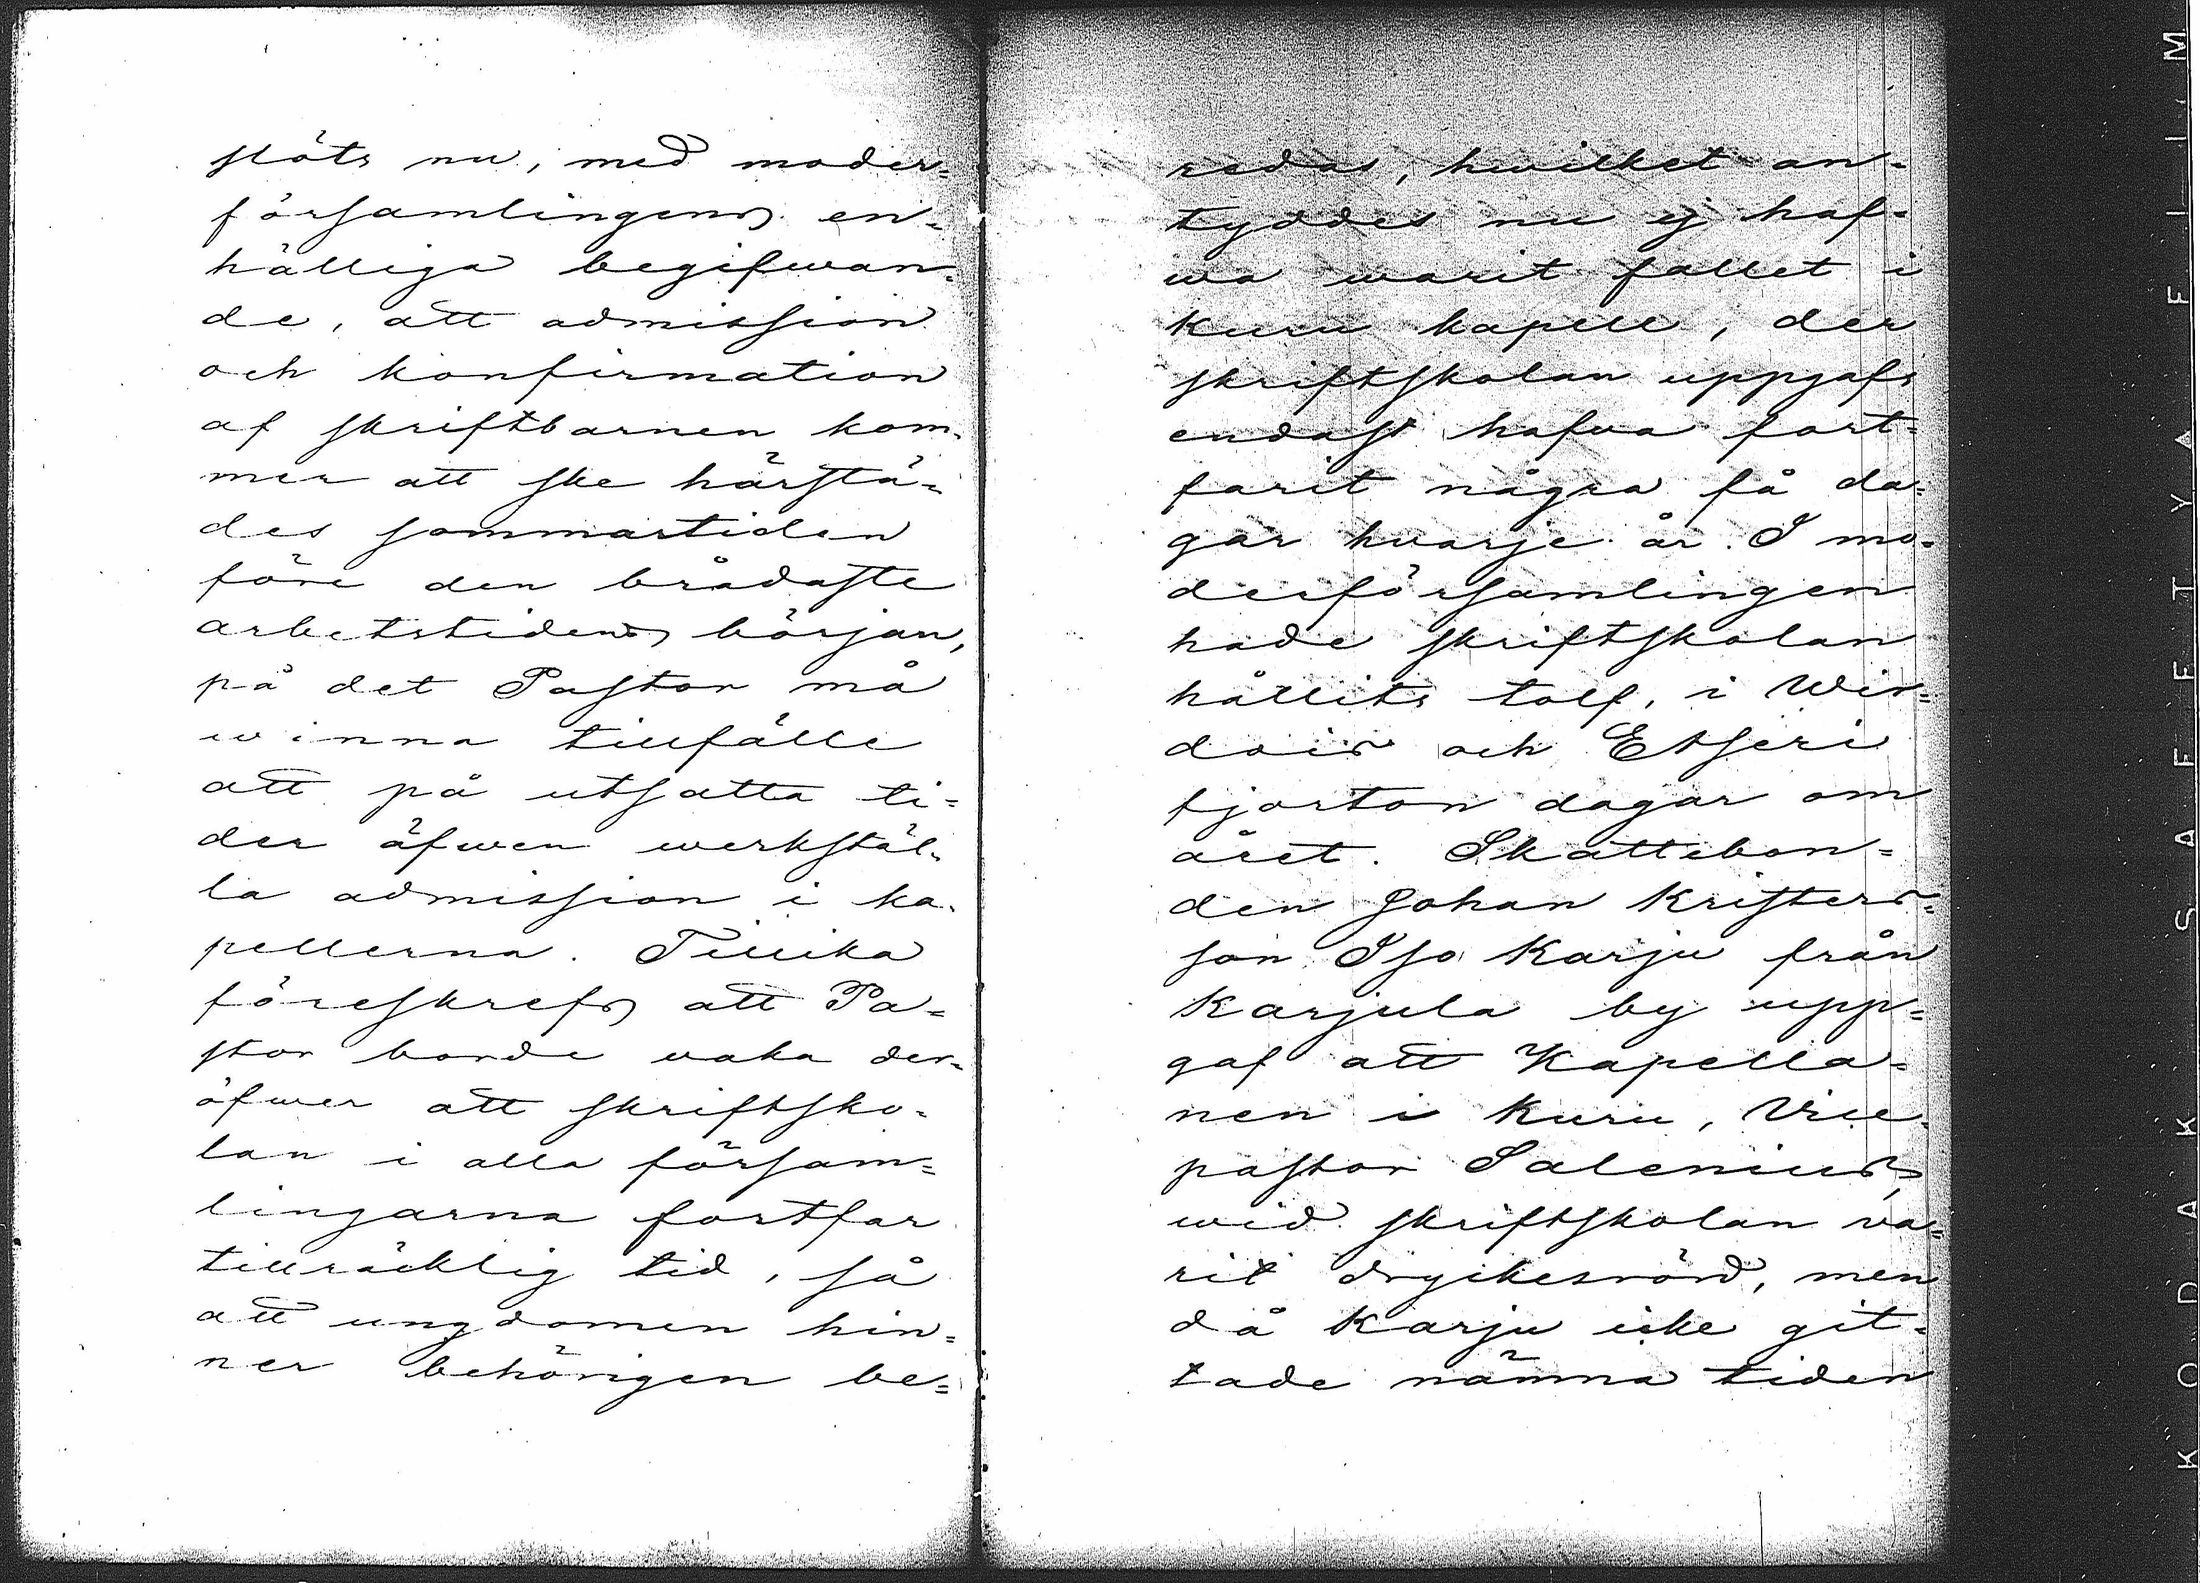 slöts nu, med moder=
församlingens en=
hälliga begifwan=
de, att admission
och konfirmation
af skriftbarnen kom=
mer att ske härstä=
des sommartiden
före den brådaste
arbetstidens början,
på det Pastor må
winna tillfälle
att på utsatta ti=
der äfwen werkstäl=
la admission i ka=
pellerna. Tillika
föreskrefs att Pa=
stor borde vaka der=
öfwer att skriftsko=
lan i alla försam=
lingarna fortfar
tillräcklig tid, så
att ungdomen hin=
ner behörigen be=
redas, hwilket an=
tyddes nu ej haf=
wa warit fallet i
Kuru kapell, der
skriftskolan uppgafs
endast hafva fort=
farit några få da=
gar hvarje år. I mo=
derförsamlingen
hade skriftskolan
hållits tolf, i Wir=
dois och Etseri
fjorton dagar om
året. Skattebon=
den Johan Kristers=
son Iso Karju från
Karjula by upp=
gaf att Kapella=
nen i Kuru, Vice
pastor Salenius,
wid skriftskolan va=
rit dryckesrörd, men
då Karju icke git=
tade nämna tiden
KODAK SAFETY FILM